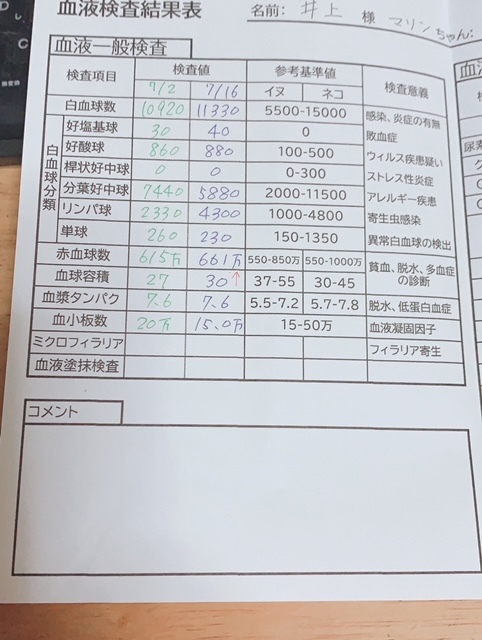 血液検査結果表
名前: 井上 様 マリンちゃん:
血液一般検査
検査項目 検査値 参考基準値 検査意義
7/2 7/16 イヌ ネコ
白血球数 10920 11330 5500-15000 感染、炎症の有無
白血球分類
好塩基球 30 40 0 敗血症
好酸球 860 880 100-500 ウィルス疾患疑い
桿状好中球 0 0 0-300 ストレス性炎症
分葉好中球 7440 5880 2000-11500 アレルギー疾患
リンパ球 2330 4300 1000-4800 寄生虫感染
単球 260 230 150-1350 異常白血球の検出
赤血球数 615万 661万 550-850万 550-1000万 貧血、脱水、多血症
の診断
血球容積 27 30↑ 37-55 30-45
血漿タンパク 7.6 7.6 5.5-7.2 5.7-7.8 脱水、低蛋白血症
血小板数 20万 15.0万 15-50万 血液凝固因子
ミクロフィラリア フィラリア寄生
血液塗抹検査
コメント